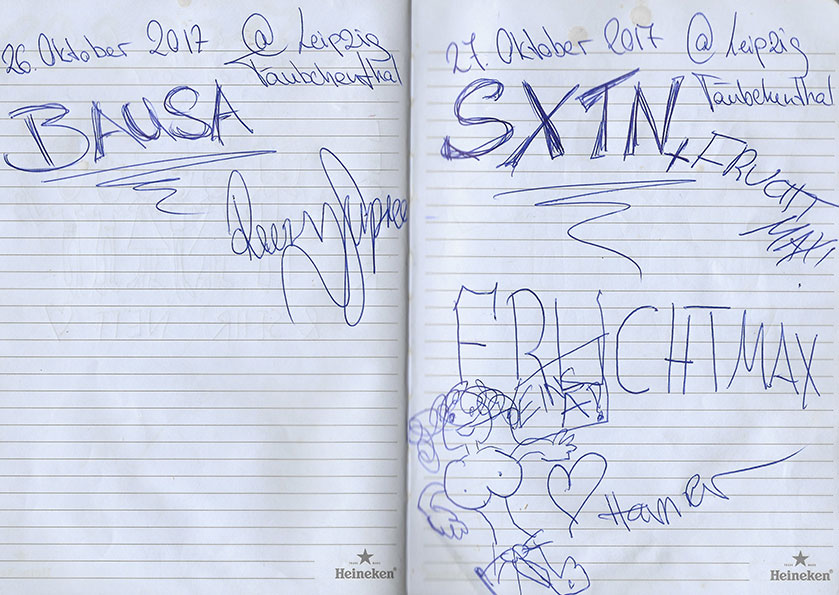 26. Oktober 2017 @ Leipzig
Täubchenthal
BAUSA
Heineken®
27. Oktober 2017 @ Leipzig
Täubchenthal
SXTN + FRUCHT
MAX!
FRUCHTMAX
EINS
A!
Heineken®